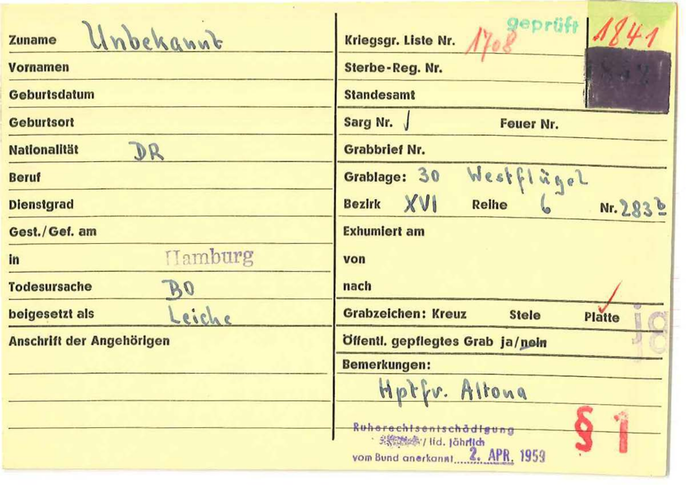 geprüft
Zuname Unbekannt
Vornamen
Geburtsdatum
Geburtsort
Nationalität DR
Beruf
Dienstgrad
Gest./Gef. am
in Hamburg
Todesursache BO
beigesetzt als Leiche
Anschrift der Angehörigen
Kriegsgr. Liste Nr. 1708 1841
Sterbe-Reg. Nr.
Standesamt
Sarg Nr. Feuer Nr.
Grabbrief Nr.
Grablage: 30 Westflügel
Bezirk XVI Reihe 6 Nr. 283b
Exhumiert am
von
nach
Grabzeichen: Kreuz Stele Platte
Öffentl. gepflegtes Grab ja/nein
Bemerkungen:
Hptfr. Altona
Ruherechtsentschädigung
/ lfd. jährlich
vom Bund anerkannt 2. APR. 1959
§ 1